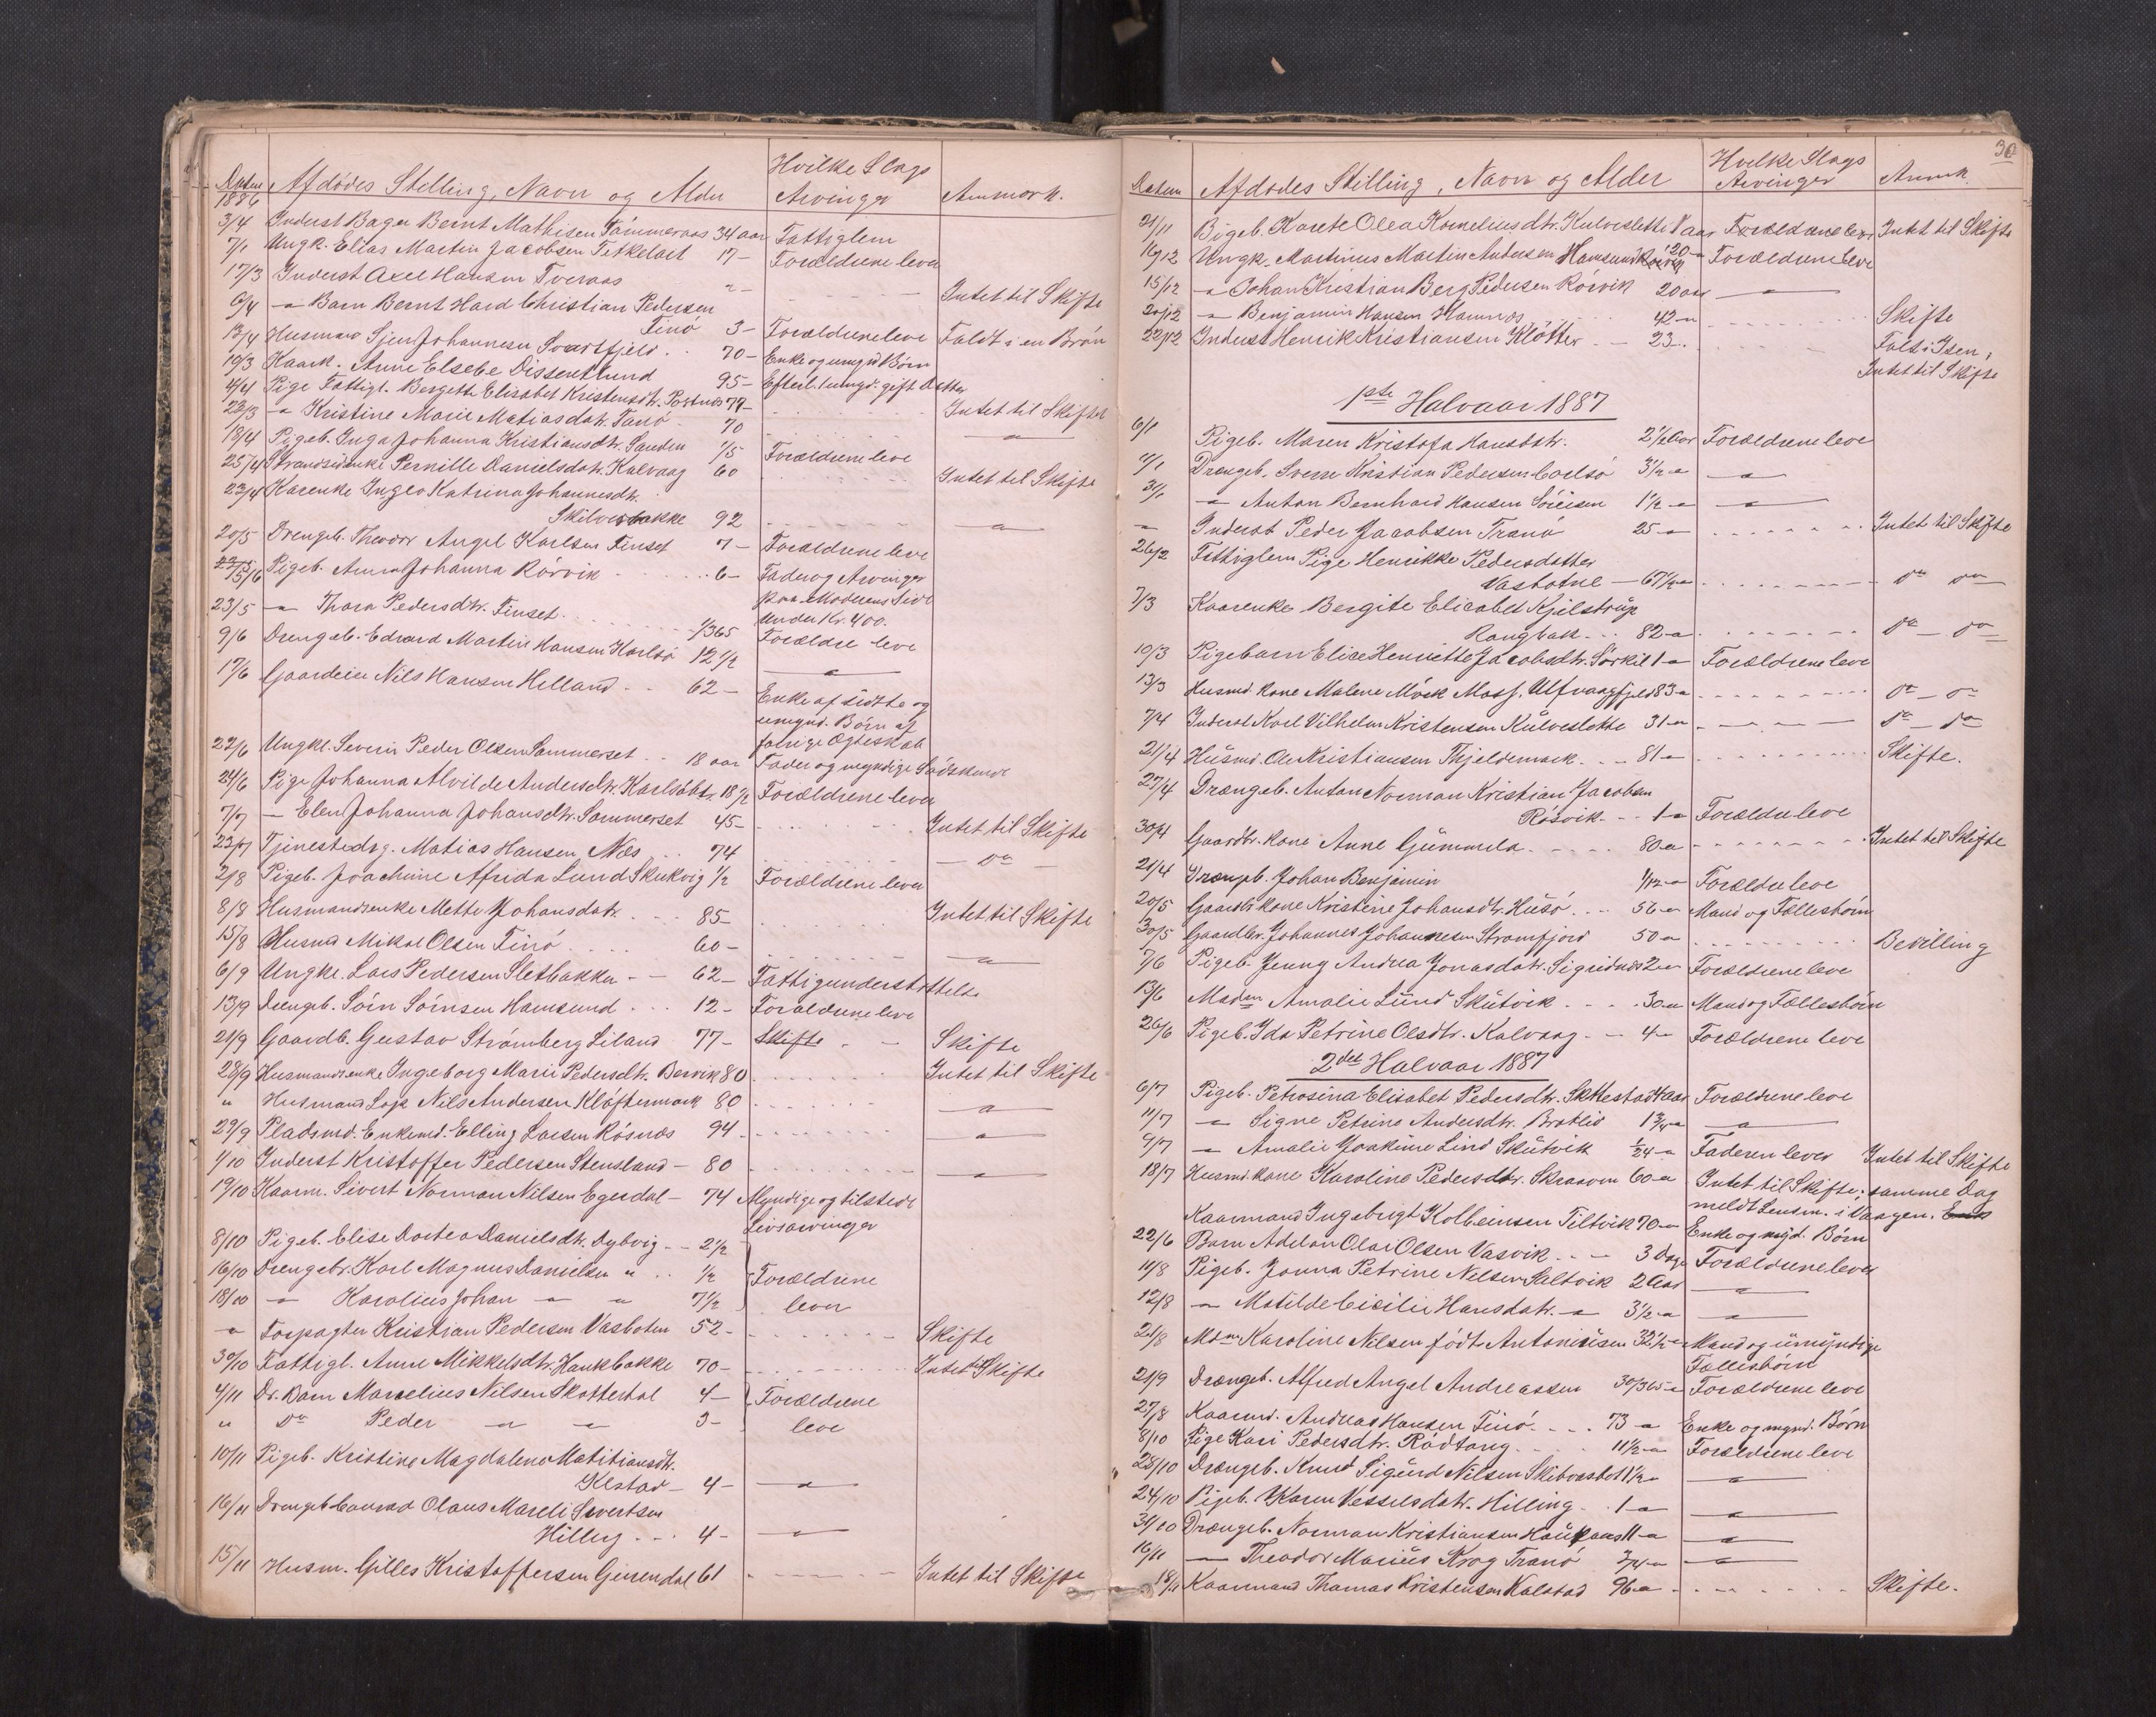 Datum 1886 Afdødes Stilling, Navn og Alder Hvilke Slags Arvinger Anmerk.
3/4 Inderst Bager Bernt Mathisen Tømmeraas 34 aar Fattiglem
7/1 Ungk. Elias Martin Jacobsen 17 – Forældrene lever
17/3 Inderst Axel Hansen Tveraas
6/4 – Barn Bernt Hard Christian Pedersen Intet til Skifte
Finø 3 – Forældrene leve Faldt i en Brøn
13/4 Husmand Johannesen Svartfjeld 70 – Enke og umynd Børn
19/3 Kaark. Anne Elsebe Dissenthund 95 – Efterl. 1 myd. gift Datter
4/4 Pige Fattigl. Bergette Elisabet Kristensdtr. 79 –
22/3 – Kristine Marie Matiasdatr. Tanø 70 Intet til Skifte
18/4 Pigeb. Inga Johanna Kristiansdtr. Sanden 1/5 Forældrene leve
25/4 Strandsidenke Pernille Danielsdatr. Kalvaag 60 Intet til Skifte
23/4 Karenke Inger Katrina Johannesdtr.
Skilvesbakke 92 – " –
20/5 Drengeb. Theodor Angel Karlsen Finset 7 – Forældrene leve
5/6 Pigeb. Anna Johanna Rørvik 6 – Fader og Arvinger
paa Moderens Side
23/5 – Thora Pedersdtr. Finset 1/365 under Kr. 400.
9/6 Drengeb. Edvard Martin Hansen Karlsø 12 1/2 Forældre leve
17/6 Gaardeier Nils Hansen Helland 62 – Enke af sidste og
umynd. Børn af
forrige Ægteskab
22/6 Ungkl. Severin Peder Olsen Sommerset 18 aar Fader og myndige Sødskende
24/6 Pige Johanna Alvilde Andersdtr. 18 1/2 Forældrene lever
7/7 – Elen Johanna Johansdtr. Sommerset 45 – Intet til Skifte
23/7 Tjenestedrg. Matias Hansen Næs 74 – Do –
2/8 Pigeb. Joachime Afrida Lund Skutvig 1/2 Forældrene lever
8/8 Husmandsenke Mette Johansdatr. 85 – Intet til Skifte
15/8 Husmd Mikal Olsen Finø 60 – – " –
6/9 Ungkl. Lars Pedersen Sletbakken 62 – Fattigunderstøttelse
13/9 Drengeb. Sørn Sørnsen Hamsund 12 – Forældrene leve
21/9 Gaardb. Gustav Strømberg Liland 77 – Skifte Skifte
28/9 Husmandsenke Ingeborg Marie Pedersdtr. Bervik 80 Intet til Skifte
" Husmand Lap Nils Andersen Kløftermark 80 – " –
29/9 Pladsmd. Enkemd. Elling Larsen Røsnæs 94 – – " –
1/10 Inderst Kristoffer Pedersen Stensland – 80 – " –
19/10 Kaarm. Sivert Norman Nilsen Egerdal – 74 Myndige og tilstede
Livsarvinger
8/10 Pigeb. Elise Dortea Danielsdtr. Dybvig 2 1/2
16/10 Drengebr. Karl Magnus Danielsen " 1/2 Forældrene
18/10 – " – Karolius Johan – " – 7 1/2 lever
– " – Forpagter Kristian Pedersen Vasboten 52 – Skifte
30/10 Fattigl. Anne Mikkelsdtr. Haukbakke 70 – Intet til Skifte
4/11 Dr. Barn Marselius Nilsen Skottestal 4 – Forældrene
" Do Peder – " – 3 – leve
10/11 Pigeb. Kristine Magdalena Matitiansdtr.
Kestad – 4 – – " –
16/11 Drengeb. Conrad Olaus Mareli Sivertsen
Hilling 4 – – " –
15/11 Husm. Gilles Kristoffersen Ginendal 61 Intet til Skifte
30
Datum Afdødes Stilling, Navn og Alder Hvilke Slags Arvinger Anmk.
21/11 Pigeb. Karete Olea Korneliusdtr. Kulvesletten 1 aar Forældrene lever Intet til Skifte
16/12 Ungk. Martinus Martin Andersen Hamsund 20 – Forældrene leve
15/12 – " – Johan Kristian Berg Pedersen Rørvik 20 aar – " –
20/12 – " – Benjamin Hansen Hamnæs 42 – " Skifte
22/12 Inderst Henrik Kristiansen Kløtter – 23 Falt i Isen,
Intet til Skifte
1ste Halvaar 1887
6/1 Pigeb. Maren Kristofa Hansdtr. 2 1/2 Aar Forældrene leve
11/1 Drengeb. Sverre Kristian Pedersen Carlsø 3 1/2 – " – " –
31/1 – " – Anton Bernhard Hansen 1 1/2 – " – " –
– " – Inderst Peder Jacobsen Tranø 25 – " Intet til Skifte
26/2 Fattiglem Pige Henrikke Pedersdatter
Vasbotne – 67 1/2 – " Do Do
7/3 Kaarenke Bergite Elisabet Kjilstrup
Rangbak 82 – " Do – Do
10/3 Pigebarn Elise Henriette Jacobsdtr. Sørkil 1 – " Forældrene leve
13/3 Husmd. kone Malene Mørk Moss. Ulfvaagfjeld 83 – " Do – Do
7/4 Inderst Karl Vilhelm Kristensen Kulveslette 31 – " Do – Do
21/4 Husmd. Ole Kristiansen Thjeldemark 81 – " Skifte.
27/4 Drængeb. Anton Norman Kristian Jacobsen
Røsvik 1 – " Forældre leve
30/4 Gaardbr. kone Anne Gummela 80 – " Intet til Skifte
21/4 Drængeb. Johan Benjamin 1/12 – " Forældre leve
20/5 Gaardbr kone Kristine Johansdtr. Husø 56 – " Mand og Fællesbørn
30/5 Gaardbr. Johannes Johannesen Strømfjord 50 – " Bevilling
7/6 Pigeb. Jenny Andrea Jonasdatr. Sigridnæs 2 – " Forældrene leve
13/6 Madm Amalie Lund Skutvik 30 – " Mand og Fællesbørn
26/6 Pigeb. Ida Petrine Olsdtr. Kalvaag 4 – " Forældrene leve
2det Halvaar 1887
6/7 Pigeb. Petrosina Elisabet Pedersdtr. 4 aar Forældrene leve
11/7 – " – Signe Petrine Andersdtr. Bratlid 1 3/4 – " – " –
9/7 – " – Amalie Joakime Lind Skutvik 1/24 – " Faderen lever Intet til Skifte
18/7 Husmd. kone Karoline Pedersdtr. Skraaven 60 – " Intet til Skifte; samme Dag
meldt Lensm. i Vaagen.
Kaarmand Ingebrigt Kolbeinsen Tiltvik 70 – " Enke og mynd. Børn
22/6 Barn Adelan Olai Olsen Vasvik 3 Dage Forældrene lever
11/8 Pigeb. Jonna Petrine Nilsen Saltvik 2 Aar – " –
12/8 – " – Matilde Cicilie Hansdatr. – " – 3 1/2 – " – " –
21/8 Mdm Karoline Nilsen født Antoniusen 32 1/2 – " Mand og umyndige
Fællesbørn
21/9 Drængeb. Alfred Angel Andreassen 30/365 – " Forældrene leve
27/8 Kaarmd. Andreas Hansen Finø 73 – " Enke og mynd. Børn
8/10 Pige Kari Pedersdtr. Rødtang 11 1/2 – " Forældrene leve
22/10 Drængeb. Knud Sigurd Nilsen 1 1/2 – " – " –
24/10 Pigeb. Karen Vesselsdatr. Hilling 1 – " – " –
31/10 Drængeb. Norman Kristiansen Haukaas 11 – " – " –
16/11 – " – Theodor Marius Krog Tranø 3/4 – " – " –
18/11 Kaarmand Thomas Kristensen Kalstad 96 – " Skifte.